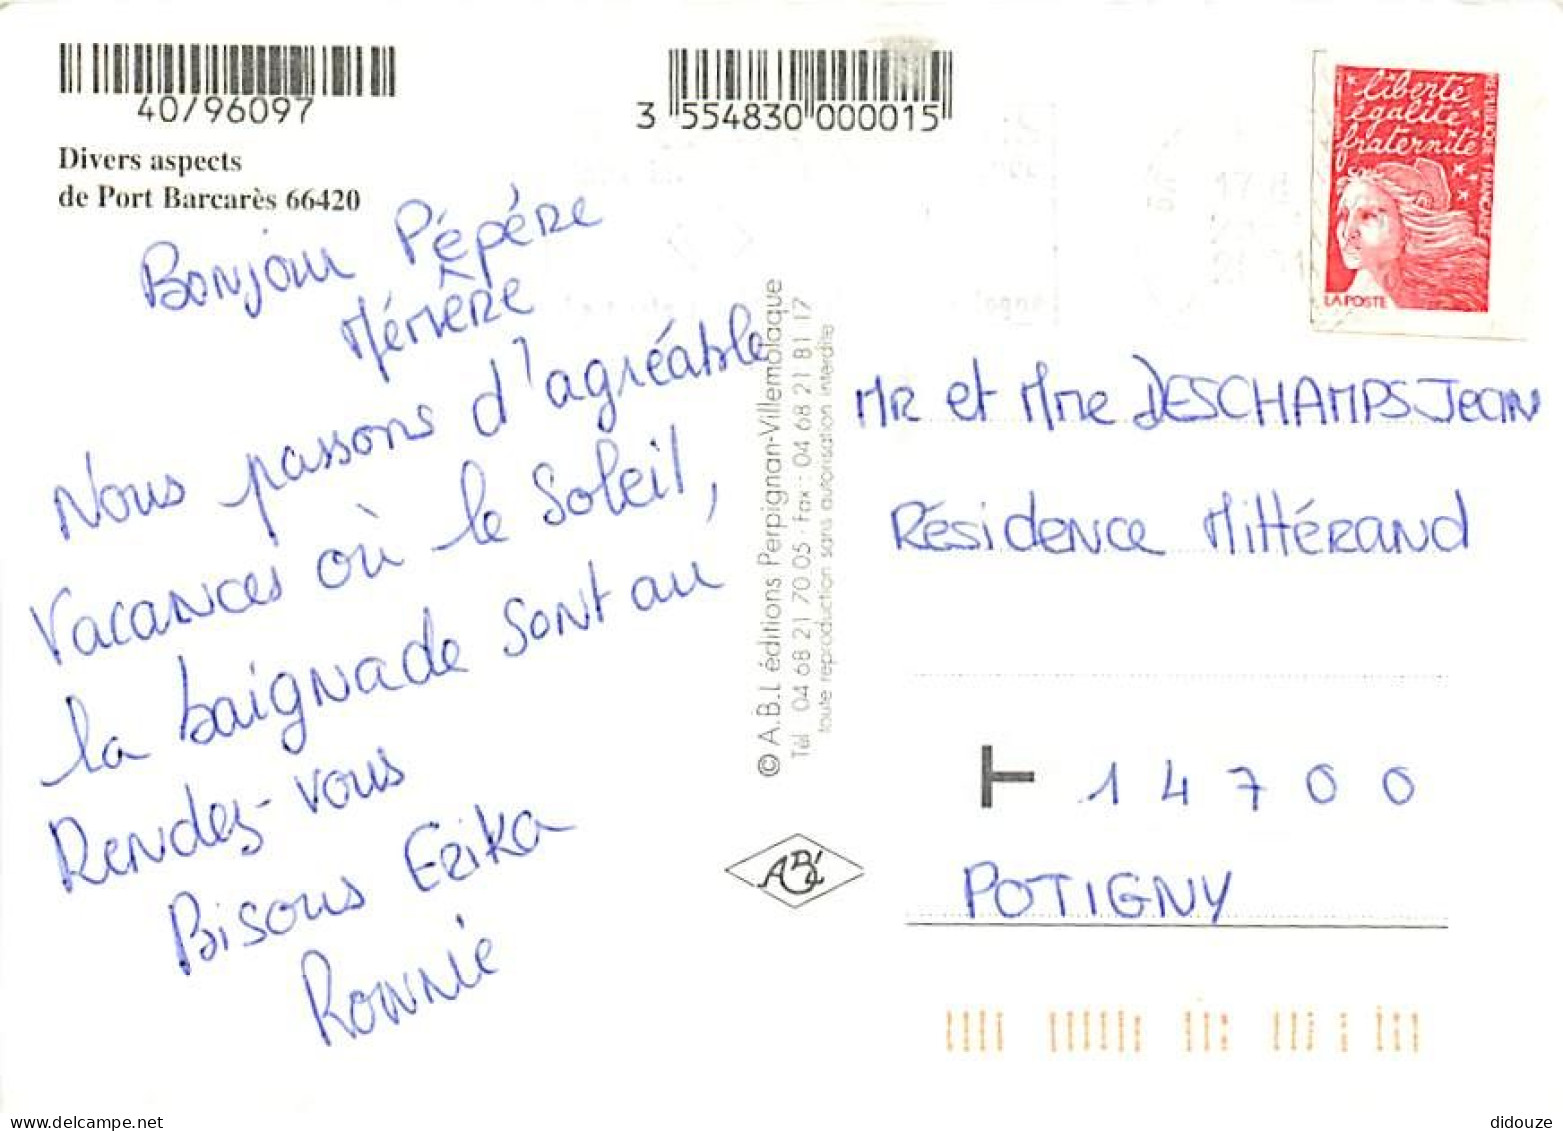 40/96097
3 554830 000015
Divers aspects
de Port Barcarès 66420
Bonjour Pépére
Mémère
Nous passons d'agréable
Vacances où le Soleil,
la baignade sont au
Rendez-vous
Bisous Erika
Ronnie
© A.B.L éditions Perpignan-Villemolaque
Tél. 04 68 21 70 05 · Fax : 04 68 21 81 17
toute reproduction sans autorisation interdite
ABL
liberté
égalité
fraternité
REPUBLIQUE FRANÇAISE
LA POSTE
MR et Mme DESCHAMPS Jean
Résidence Mittérand
T 14700
POTIGNY
didouze